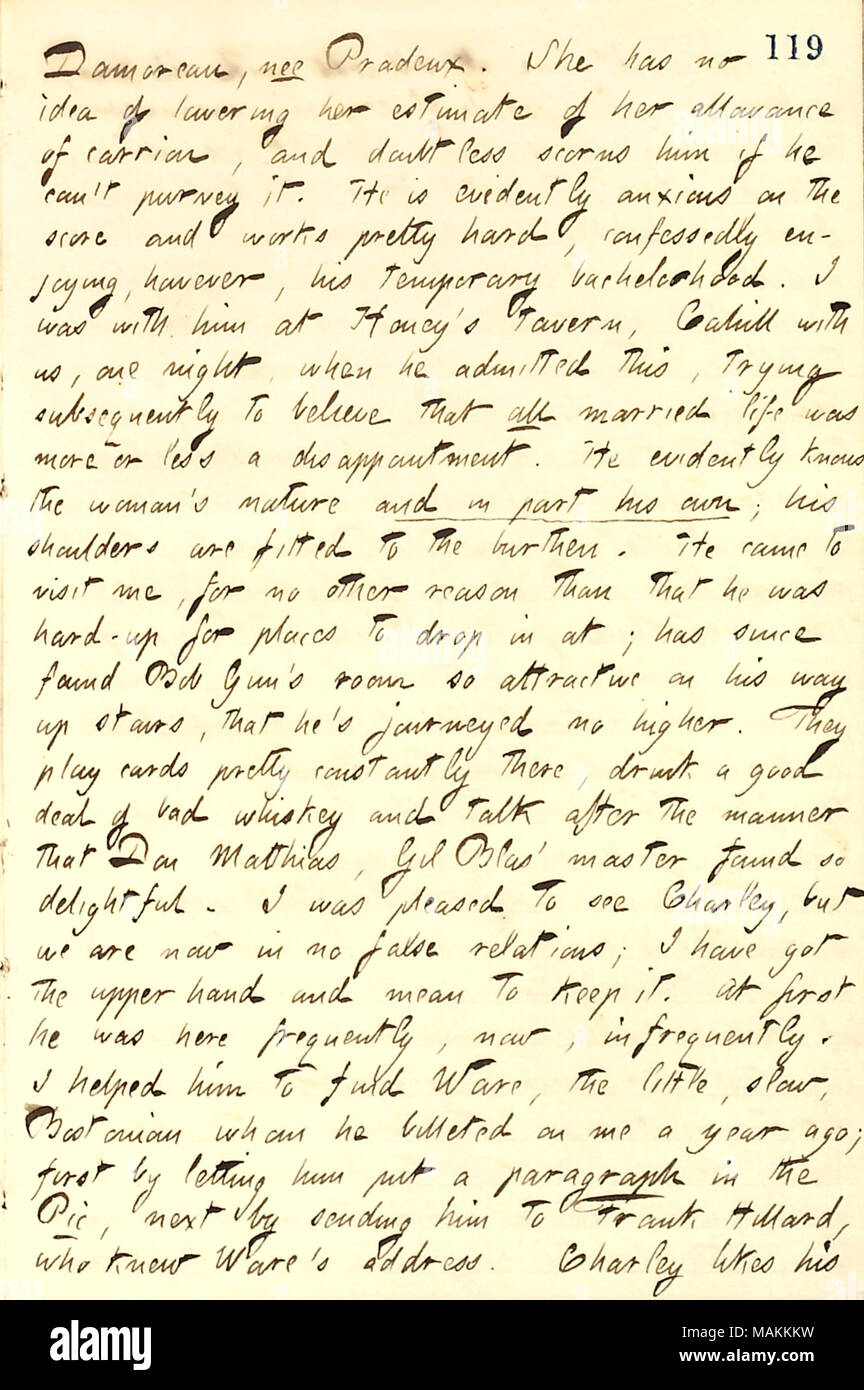 119
Damoreau, nee Pradeux. She has no
idea of lowering her estimate of her allowance
of carrion, and doubtless scorns him if he
can't purvey it. He is evidently anxious on the
score and works pretty hard, confessedly en-
joying, however, his temporary bachelorhood. I
was with him at Honey's tavern, Cahill with
us, one night, when he admitted this, trying
subsequently to believe that all married life was
more or less a disappointment. He evidently knows
the woman's nature and in part his own; his
shoulders are fitted to the burthen. He came to
visit me, for no other reason than that he was
hard-up for places to drop in at; has since
found Bob Gun's room so attractive on his way
up stairs, that he's journeyed no higher. They
play cards pretty constantly there, drink a good
deal of bad whiskey and talk after the manner
that Don Matthias, Gil Blas' master found so
delightful. I was pleased to see Charley, but
we are now in no false relations; I have got
the upper hand and mean to keep it. At first
he was here frequently, now, infrequently.
I helped him to find Ware, the little, slow,
Bostonian whom he billeted on me a year ago;
first by letting him put a paragraph in the
Pic, next by sending him to Frank Hillard,
who knew Ware's address. Charley likes his
alamy
Image ID: MAKKKW
www.alamy.com